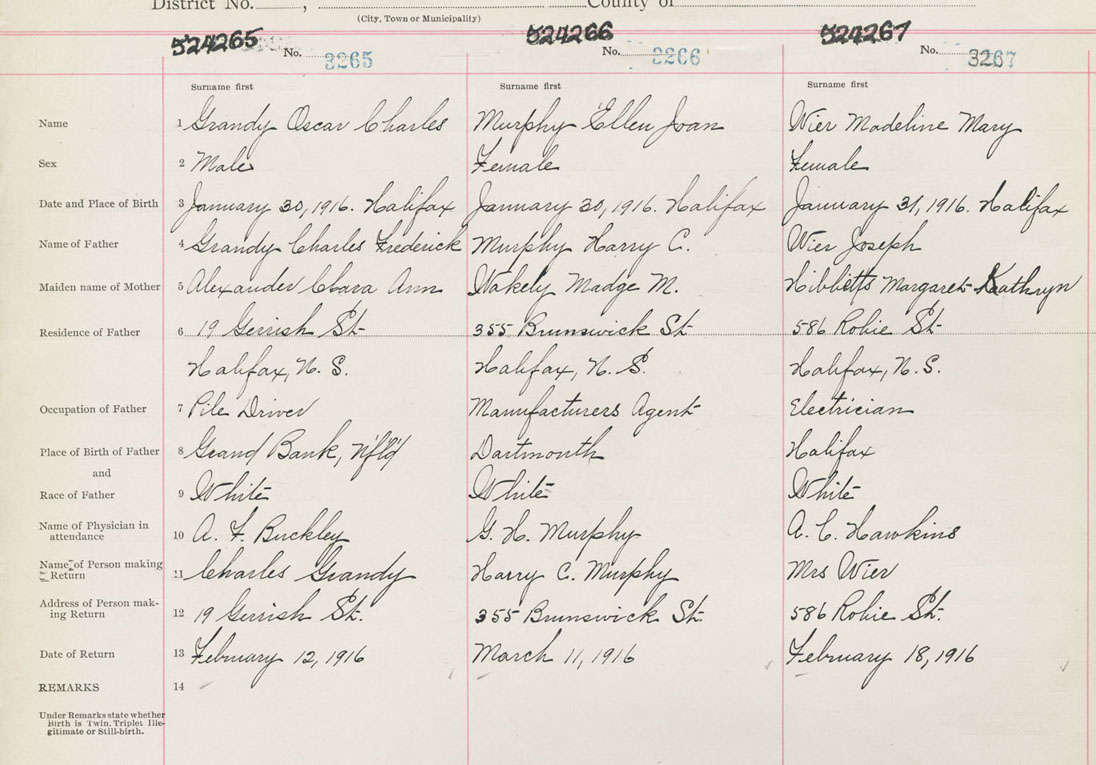 District No. , County of
(City, Town or Municipality)
524265 524266 524267
No. 3265 No. 3266 No. 3267
Surname first Surname first Surname first
Name 1 Grandy Oscar Charles Murphy Ellen Joan Wier Madeline Mary
Sex 2 Male Female Female
Date and Place of Birth 3 January 30, 1916. Halifax January 30, 1916. Halifax January 31, 1916. Halifax
Name of Father 4 Grandy Charles Frederick Murphy Harry C. Wier Joseph
Maiden name of Mother 5 Alexander Clara Ann Wakely Madge M. Hibbetts Margaret Kathryn
Residence of Father 6 19 Gerrish St. 355 Brunswick St. 586 Robie St.
Halifax, N.S. Halifax, N.S. Halifax, N.S.
Occupation of Father 7 Pile Driver Manufacturers Agent Electrician
Place of Birth of Father 8 Grand Bank, Nfld Dartmouth Halifax
and
Race of Father 9 White White White
Name of Physician in
attendance 10 A. F. Buckley G. H. Murphy A. C. Hawkins
Name of Person making
Return 11 Charles Grandy Harry C. Murphy Mrs Wier
Address of Person mak-
ing Return 12 19 Gerrish St. 355 Brunswick St. 586 Robie St.
Date of Return 13 February 12, 1916 March 11, 1916 February 18, 1916
REMARKS 14
Under Remarks state whether
Birth is Twin, Triplet, Ille-
gitimate or Still-birth.